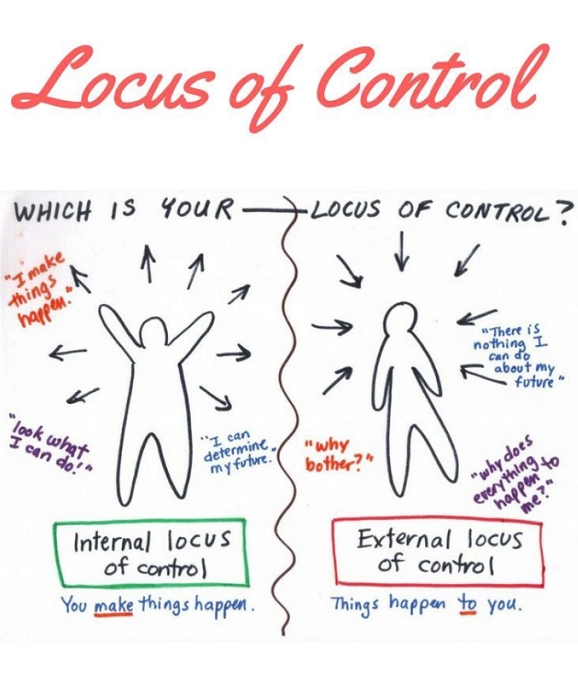 Locus of Control
WHICH IS YOUR LOCUS OF CONTROL?
"I make
things
happen."
"look what
I can do!"
"I can
determine
my future.
Internal locus
of control
You make things happen.
"There is
nothing I
can do
about my
future"
"why
bother?"
"why does
everything to
happen
me?"
External locus
of control
Things happen to you.